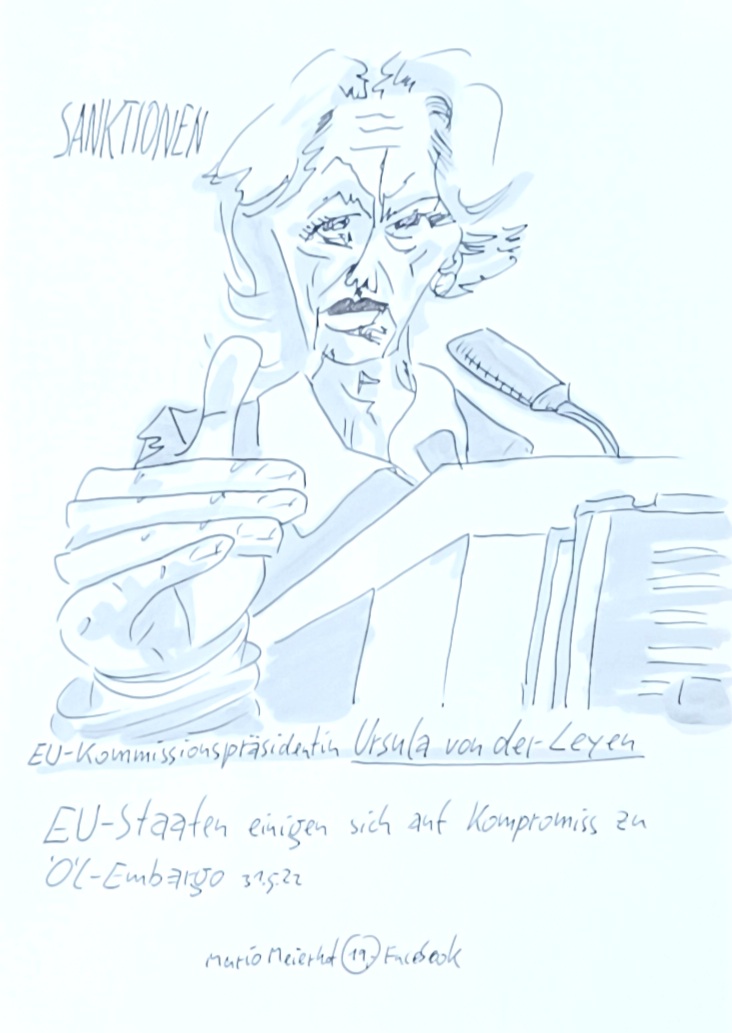 SANKTIONEN
EU-Kommissionspräsidentin Ursula von der Leyen
EU-Staaten einigen sich auf Kompromiss zu
Öl-Embargo 31.5.22
Mario Meierhof 19. Facebook